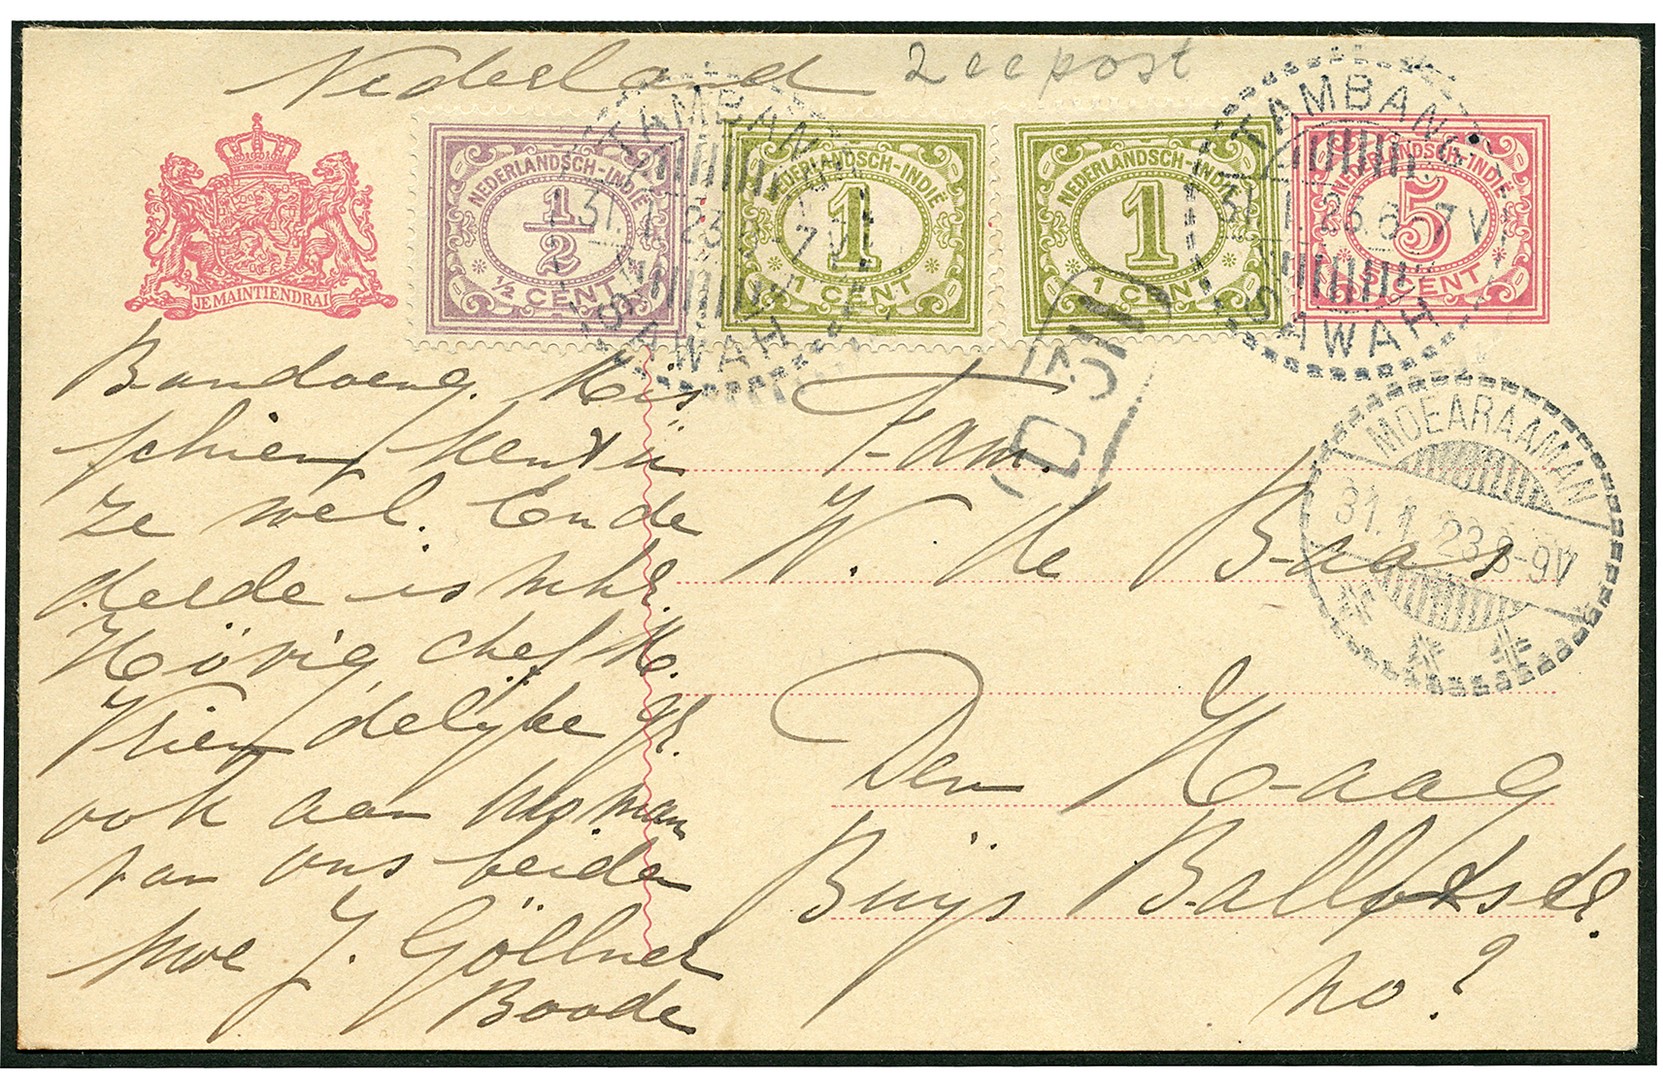 Nederland Zeepost
JE MAINTIENDRAI
NEDERLANDSCH-INDIE
1/2
1/2 CENT
NEDERLANDSCH-INDIE
1
1 CENT
NEDERLANDSCH-INDIE
1
1 CENT
NEDERLANDSCH-INDIE
5
5 CENT
TAMBANG
31.1.23.6-7V
SAWAH
TAMBANG
31.1.23.6-7V
SAWAH
MOEARAAMAN
31.1.23.8-9V
Bandoeng. Mis
schien kent u
ze wel. En de
derde is mhr.
Hövig, chef
Vriendelijke gr.
ook aan Uw man
van ons beiden
J. Göllner
Boode
Fam.
W. de Baas
Den Haag
Buijs Ballotstr.
no?